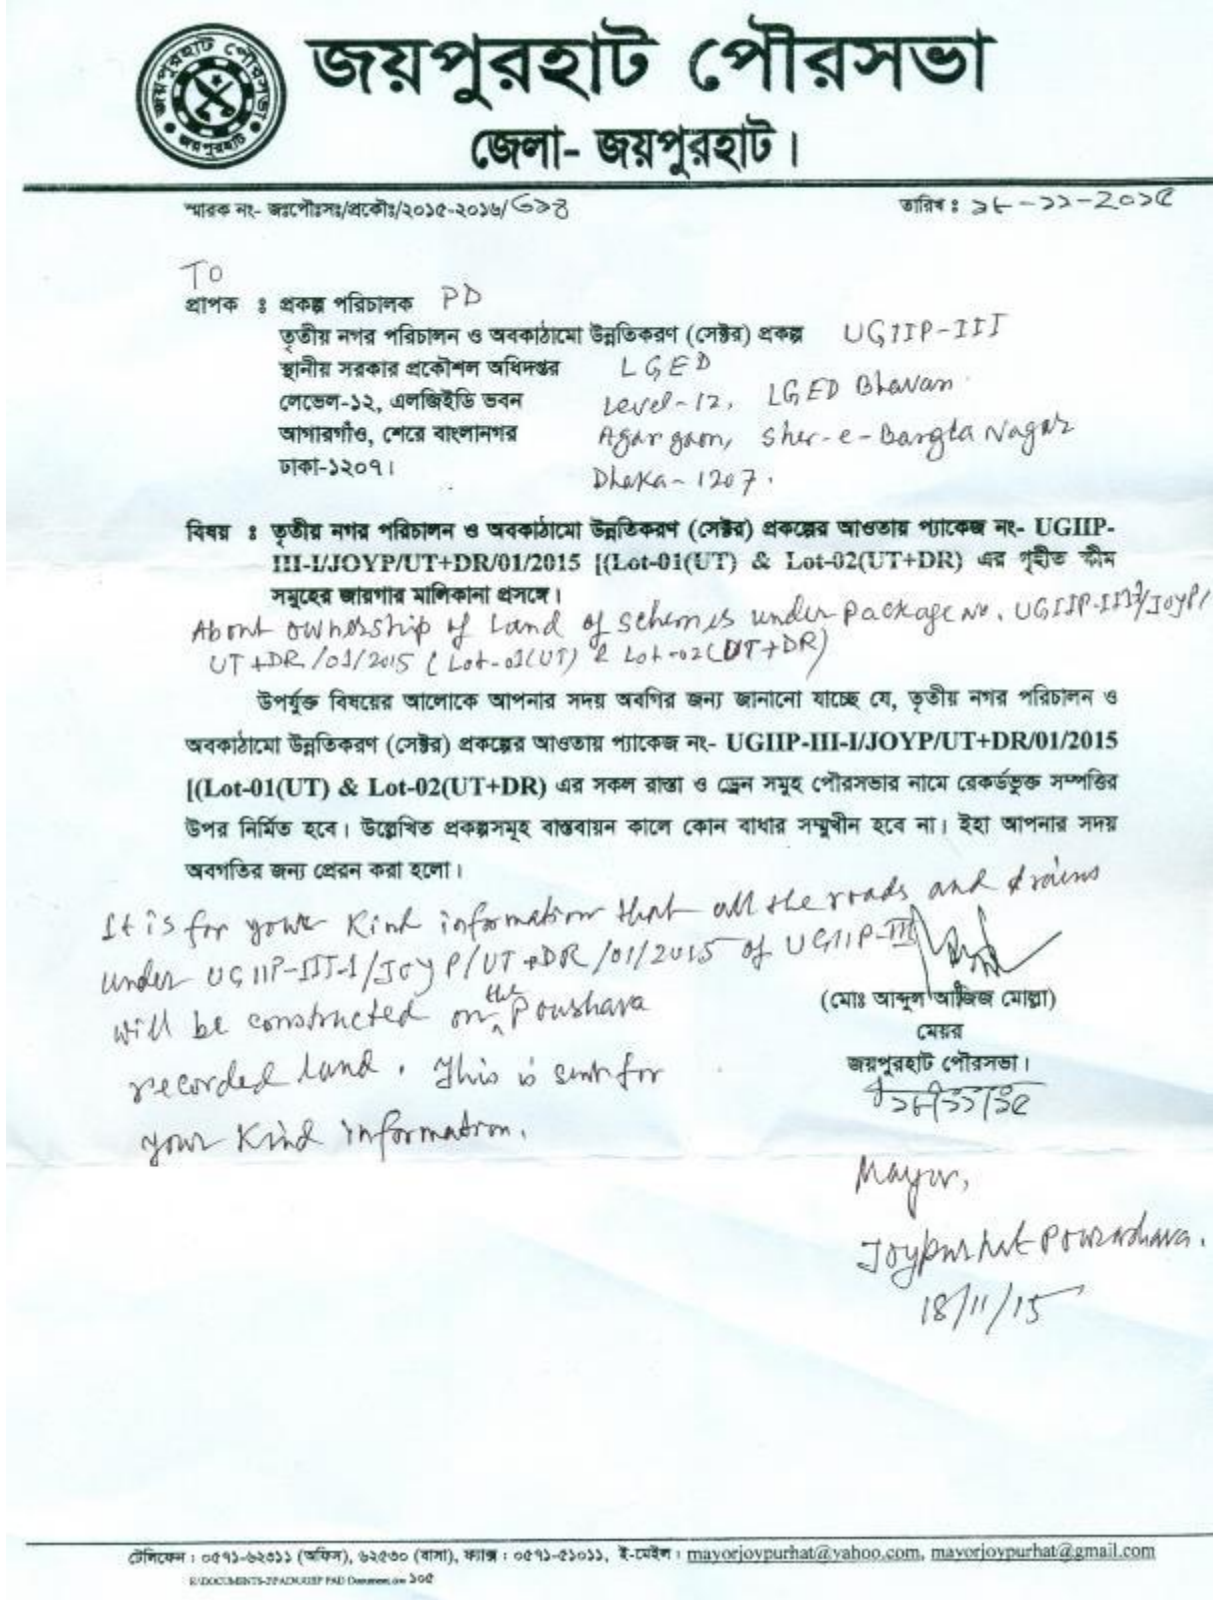 জয়পুরহাট পৌরসভা
জয়পুরহাট
জয়পুরহাট পৌরসভা
জেলা- জয়পুরহাট।
স্মারক নং- জঃপৌঃসঃ/প্রকৌঃ/২০১৫-২০১৬/
তারিখ ঃ ১৮-১১-২০১৫
TO
প্রাপক ঃ প্রকল্প পরিচালক PD
তৃতীয় নগর পরিচালন ও অবকাঠামো উন্নতিকরণ (সেক্টর) প্রকল্প UGIIP-III
স্থানীয় সরকার প্রকৌশল অধিদপ্তর LGED
লেভেল-১২, এলজিইডি ভবন Level-12, LGED Bhavan
আগারগাঁও, শেরে বাংলানগর Agargaon, Sher-e-Bangla Nagar
ঢাকা-১২০৭। Dhaka-1207.
বিষয় ঃ তৃতীয় নগর পরিচালন ও অবকাঠামো উন্নতিকরণ (সেক্টর) প্রকল্পের আওতায় প্যাকেজ নং- UGIIP-
III-I/JOYP/UT+DR/01/2015 [(Lot-01(UT) & Lot-02(UT+DR) এর গৃহীত স্কীম
সমুহের জায়গার মালিকানা প্রসঙ্গে।
About ownership of Land of schemes under Package No. UGIIP-III/JOYP/
UT+DR/01/2015 (Lot-01(UT) & Lot-02(UT+DR)
উপর্যুক্ত বিষয়ের আলোকে আপনার সদয় অবগির জন্য জানানো যাচ্ছে যে, তৃতীয় নগর পরিচালন ও
অবকাঠামো উন্নতিকরণ (সেক্টর) প্রকল্পের আওতায় প্যাকেজ নং- UGIIP-III-I/JOYP/UT+DR/01/2015
[(Lot-01(UT) & Lot-02(UT+DR) এর সকল রাস্তা ও ড্রেন সমূহ পৌরসভার নামে রেকর্ডভুক্ত সম্পত্তির
উপর নির্মিত হবে। উল্লেখিত প্রকল্পসমূহ বাস্তবায়ন কালে কোন বাধার সম্মুখীন হবে না। ইহা আপনার সদয়
অবগতির জন্য প্রেরন করা হলো।
It is for your kind information that all the roads and drains
under UGIIP-III-1/JOYP/UT+DR/01/2015 of UGIIP-III
will be constructed on the Pourshava
recorded land. This is sent for
your kind information.
(মোঃ আব্দুল আজিজ মোল্লা)
মেয়র
জয়পুরহাট পৌরসভা।
১৮/১১/১৫
Mayor,
Joypurhat Pourashava.
18/11/15
টেলিফোন : ০৫৭১-৬২৩১১ (অফিস), ৬২৫৩০ (বাসা), ফ্যাক্স : ০৫৭১-৫১০১১, ই-মেইল : mayorjoypurhat@yahoo.com, mayorjoypurhat@gmail.com
১০৫